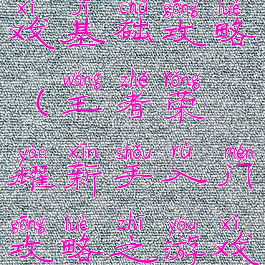 xì jī chǔ gōng lüè
戏基础攻略
wáng zhě róng
(王者荣
yào xīn shǒu rù mén
耀新手入门
gōng lüè zhī yóu xì
攻略之游戏